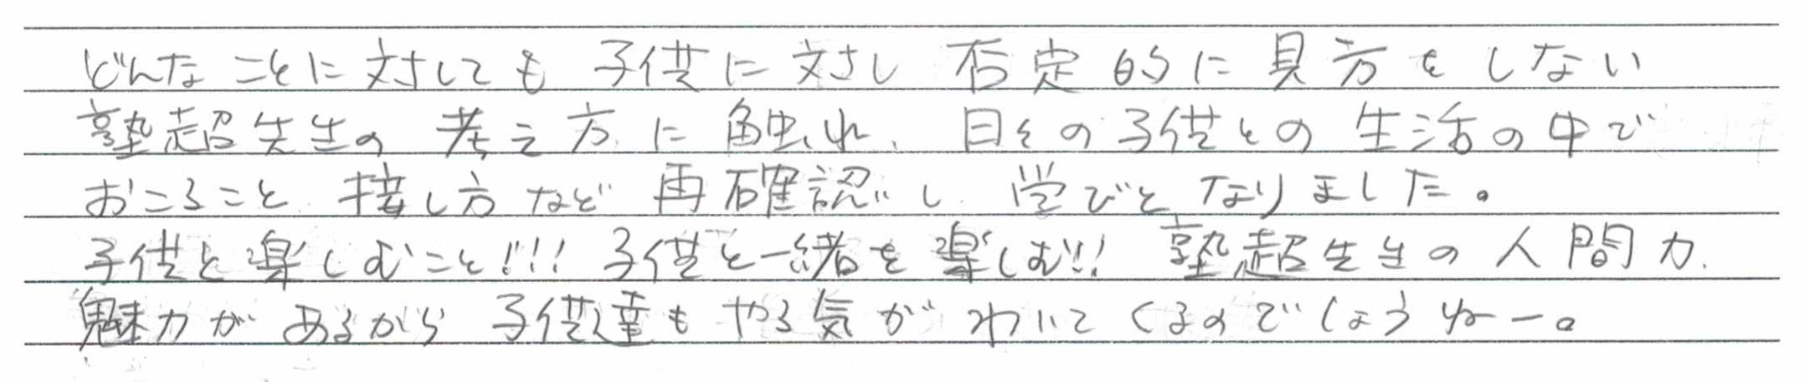 どんなことに対しても 子供に対し 否定的に見方をしない
塾超先生の 考え方に触れ、日々の子供との生活の中で
おこること 接し方など 再確認し 学びとなりました。
子供と楽しむこと!!! 子供と一緒を楽しむ!! 塾超先生の人間力、
魅力があるから 子供達も やる気が わいてくるのでしょうねー。